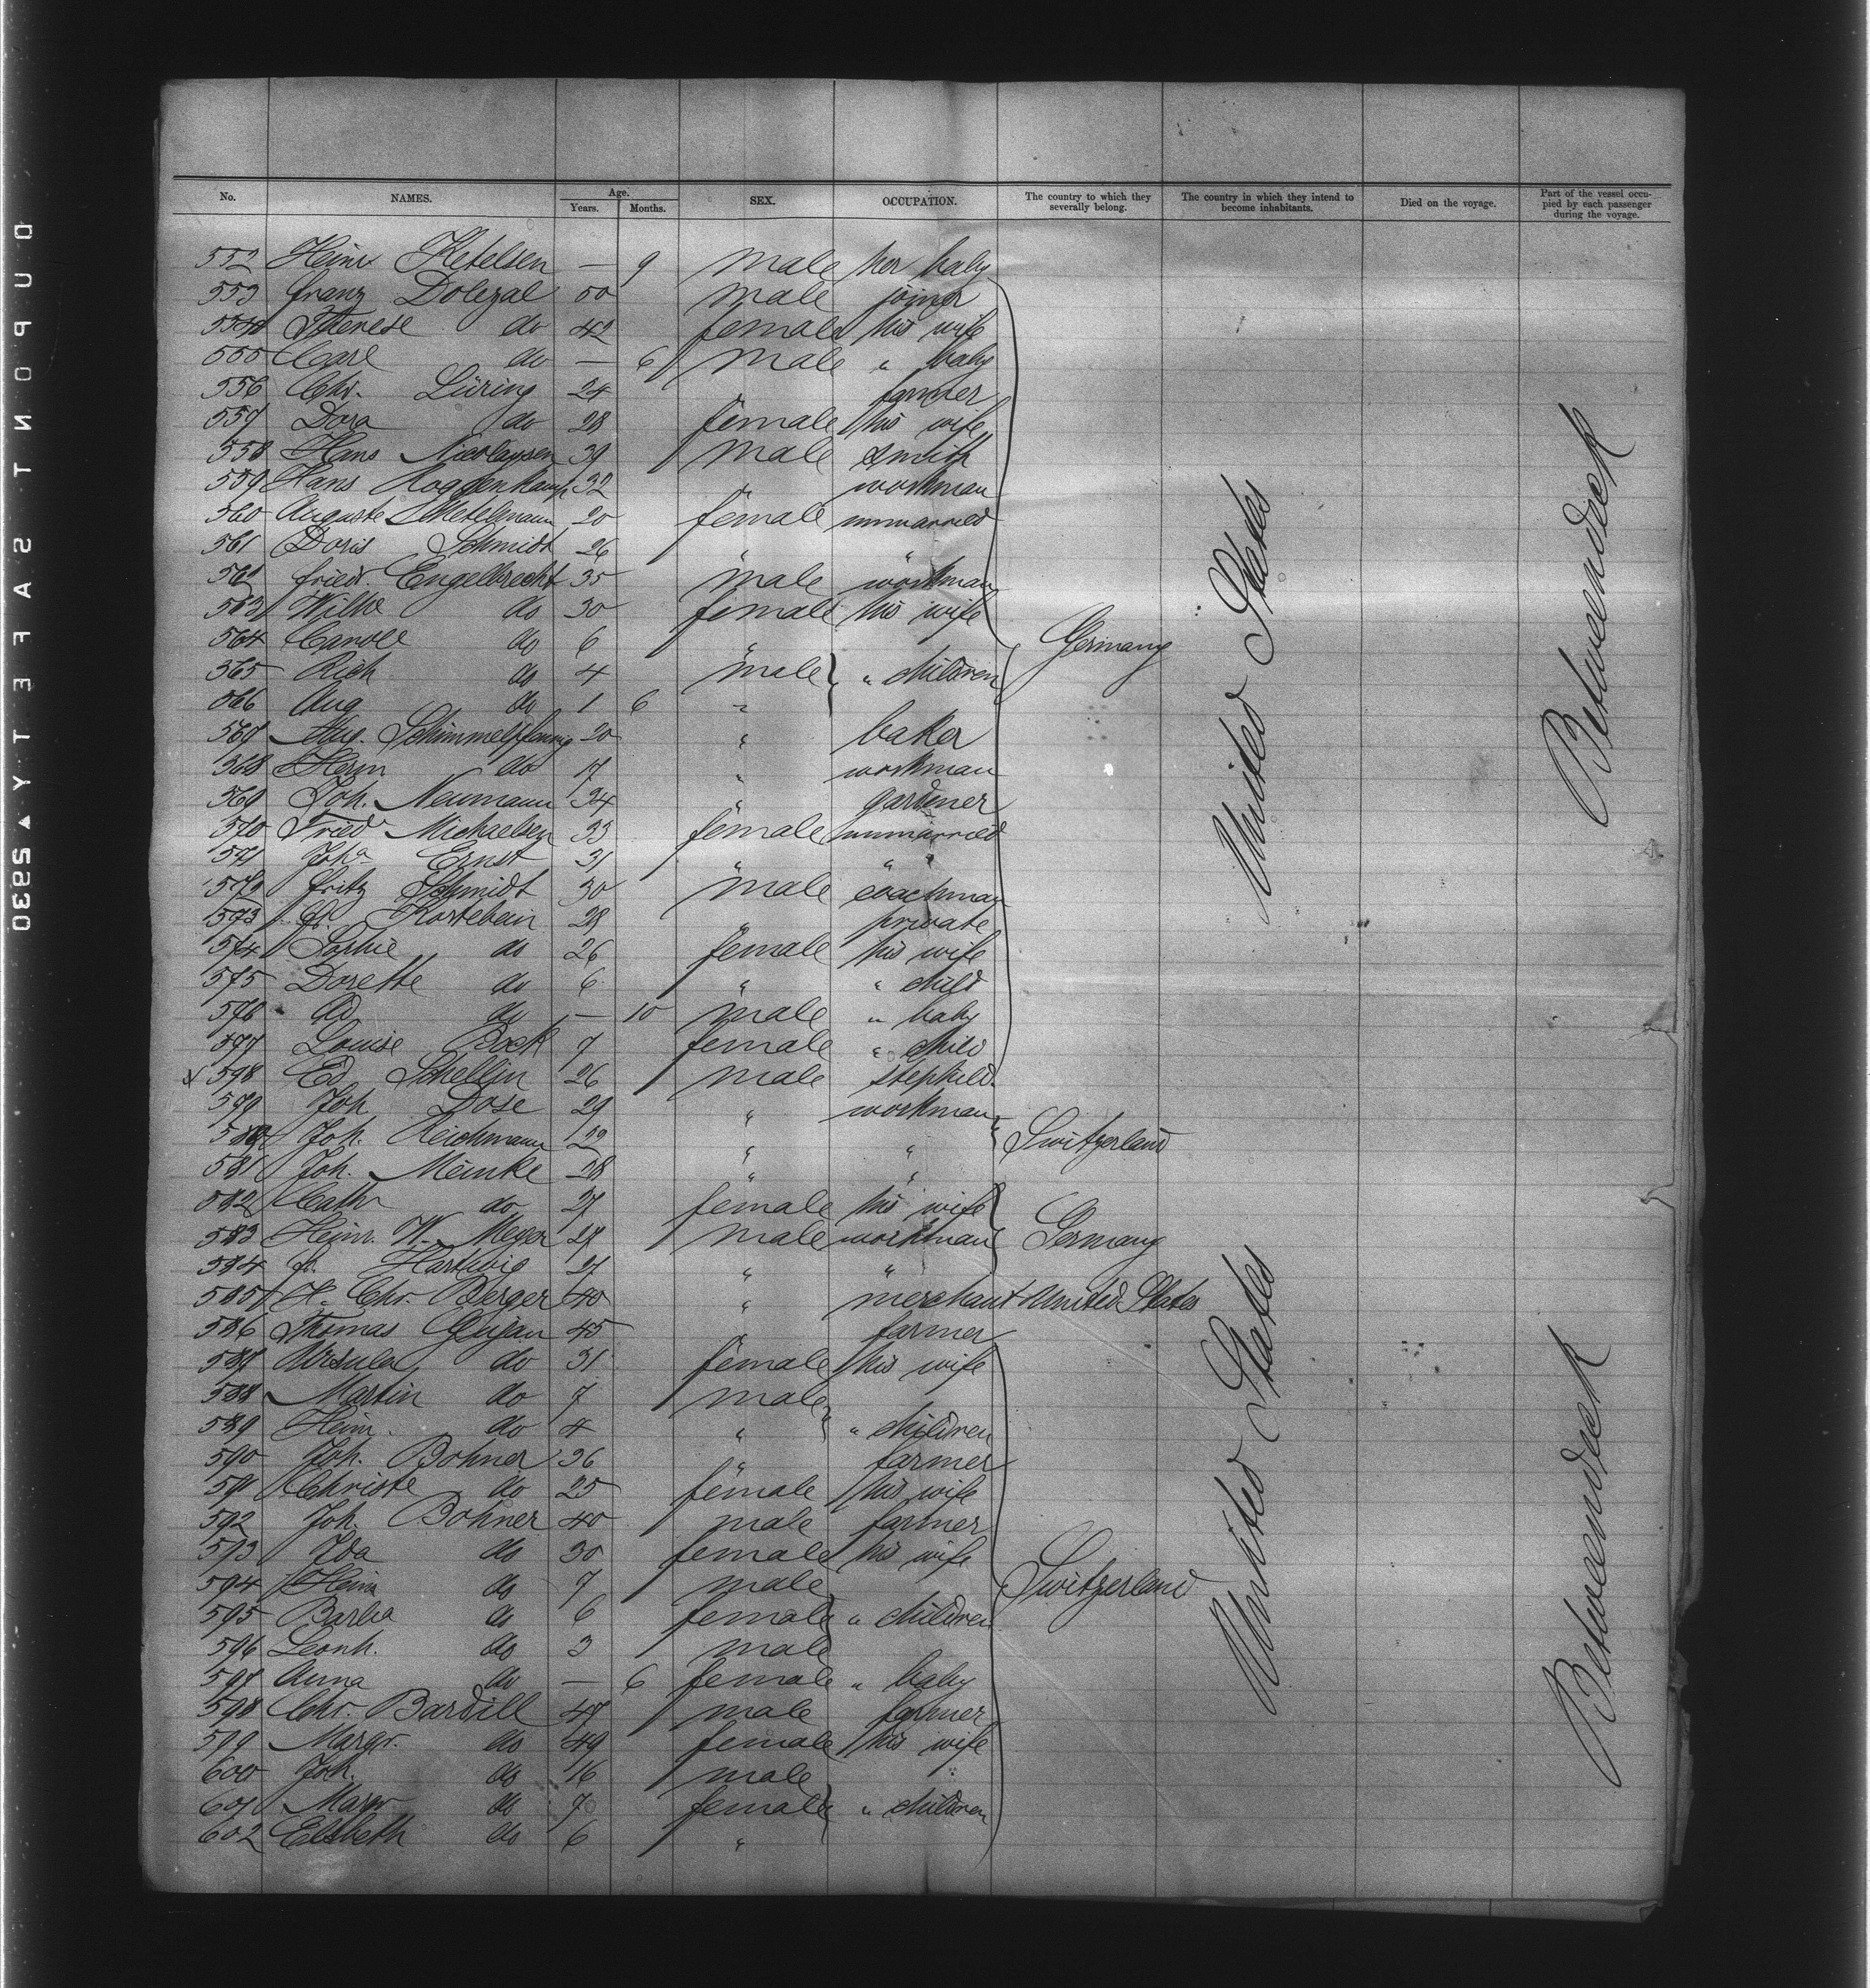 No. NAMES. Age. Years. Months. SEX. OCCUPATION. The country to which they severally belong. The country in which they intend to become inhabitants. Died on the voyage. Part of the vessel occupied by each passenger during the voyage.
552 Heinr Ketelsen — 9 male her baby
553 Franz Dolezal 50 male joiner
554 Therese do 42 female his wife
555 Carl do — 6 male " baby
556 Chr. Lüring 24 " farmer
557 Dora do 28 female his wife
558 Hans Nicolaysen 39 male smith
559 Hans Roggenkamp 32 " workman
560 Auguste 20 female unmarried
561 Doris Schmidt 26 " "
562 Friedr. Engelbrecht 35 male workman
563 Wilhe do 30 female his wife
564 do 6 "
565 Rich do 4 male " children Germany
566 Aug do 1 6 "
567 Aug. Schimmelpfennig 20 " baker
568 Herm do 17 " workman
569 Joh. Neumann 34 " gardener
570 Fried Michaelsen 33 female unmarried
571 Joha Ernst 31 " "
572 Fritz Schmidt 30 male coachman
573 Fr. Kortebein 28 " private
574 Sophie do 26 female his wife
575 Dorette do 6 " " child
576 Ad do — 10 male " baby
577 Louise Bock 7 female " child
x 578 Ed Schellin 26 male stepchild
579 Joh Dose 29 " workman
580 Joh. Reichmann 22 " " Switzerland
581 Joh. Meinke 28 " "
582 Cathr do 27 female his wife
583 Heinr. W. Meyer 28 male workman Germany
584 Fr. Hartwig 27 " "
585 H. Chr. Berger 40 " merchant United States
586 Thomas Gujan 45 " farmer
587 Ursula do 31 female his wife
588 Martin do 7 male
589 Heinr. do 4 " " children
590 Joh. Bohner 36 " farmer
591 Christe do 25 female his wife
592 Joh. Bohner 40 male farmer
593 Ida do 30 female his wife
594 Heinr do 7 male Switzerland
595 Barba do 6 female " children
596 Leonh. do 3 male
597 Anna do — 6 female " baby
598 Chr. Bardill 47 male farmer
599 Margr. do 49 female his wife
600 Joh. do 16 male
601 Margr do 7 female " children
602 Elsbeth do 6 "
United States
Betweendeck
United States
Betweendeck
DUPONT SAFETY